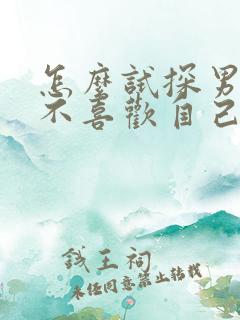 怎麼試探男
不喜歡自己
錢王祠
未經同意禁止轉載